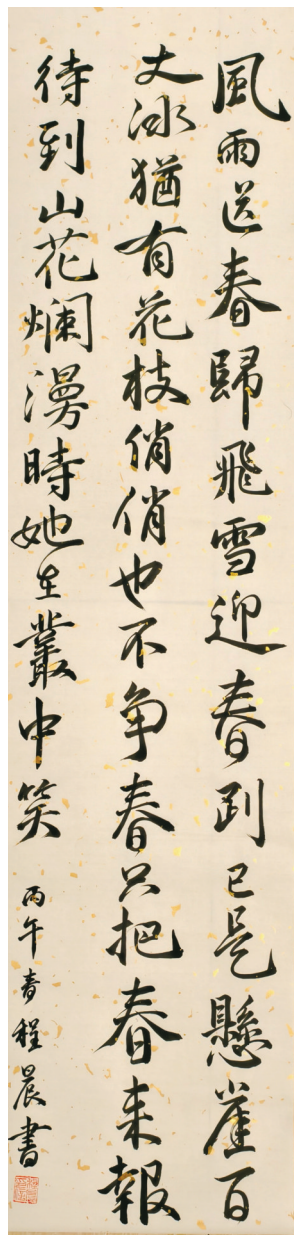 風雨送春歸飛雪迎春到已是懸崖百
丈冰猶有花枝俏俏也不争春只把春来報
待到山花爛漫時她在叢中笑
丙午春程晨書